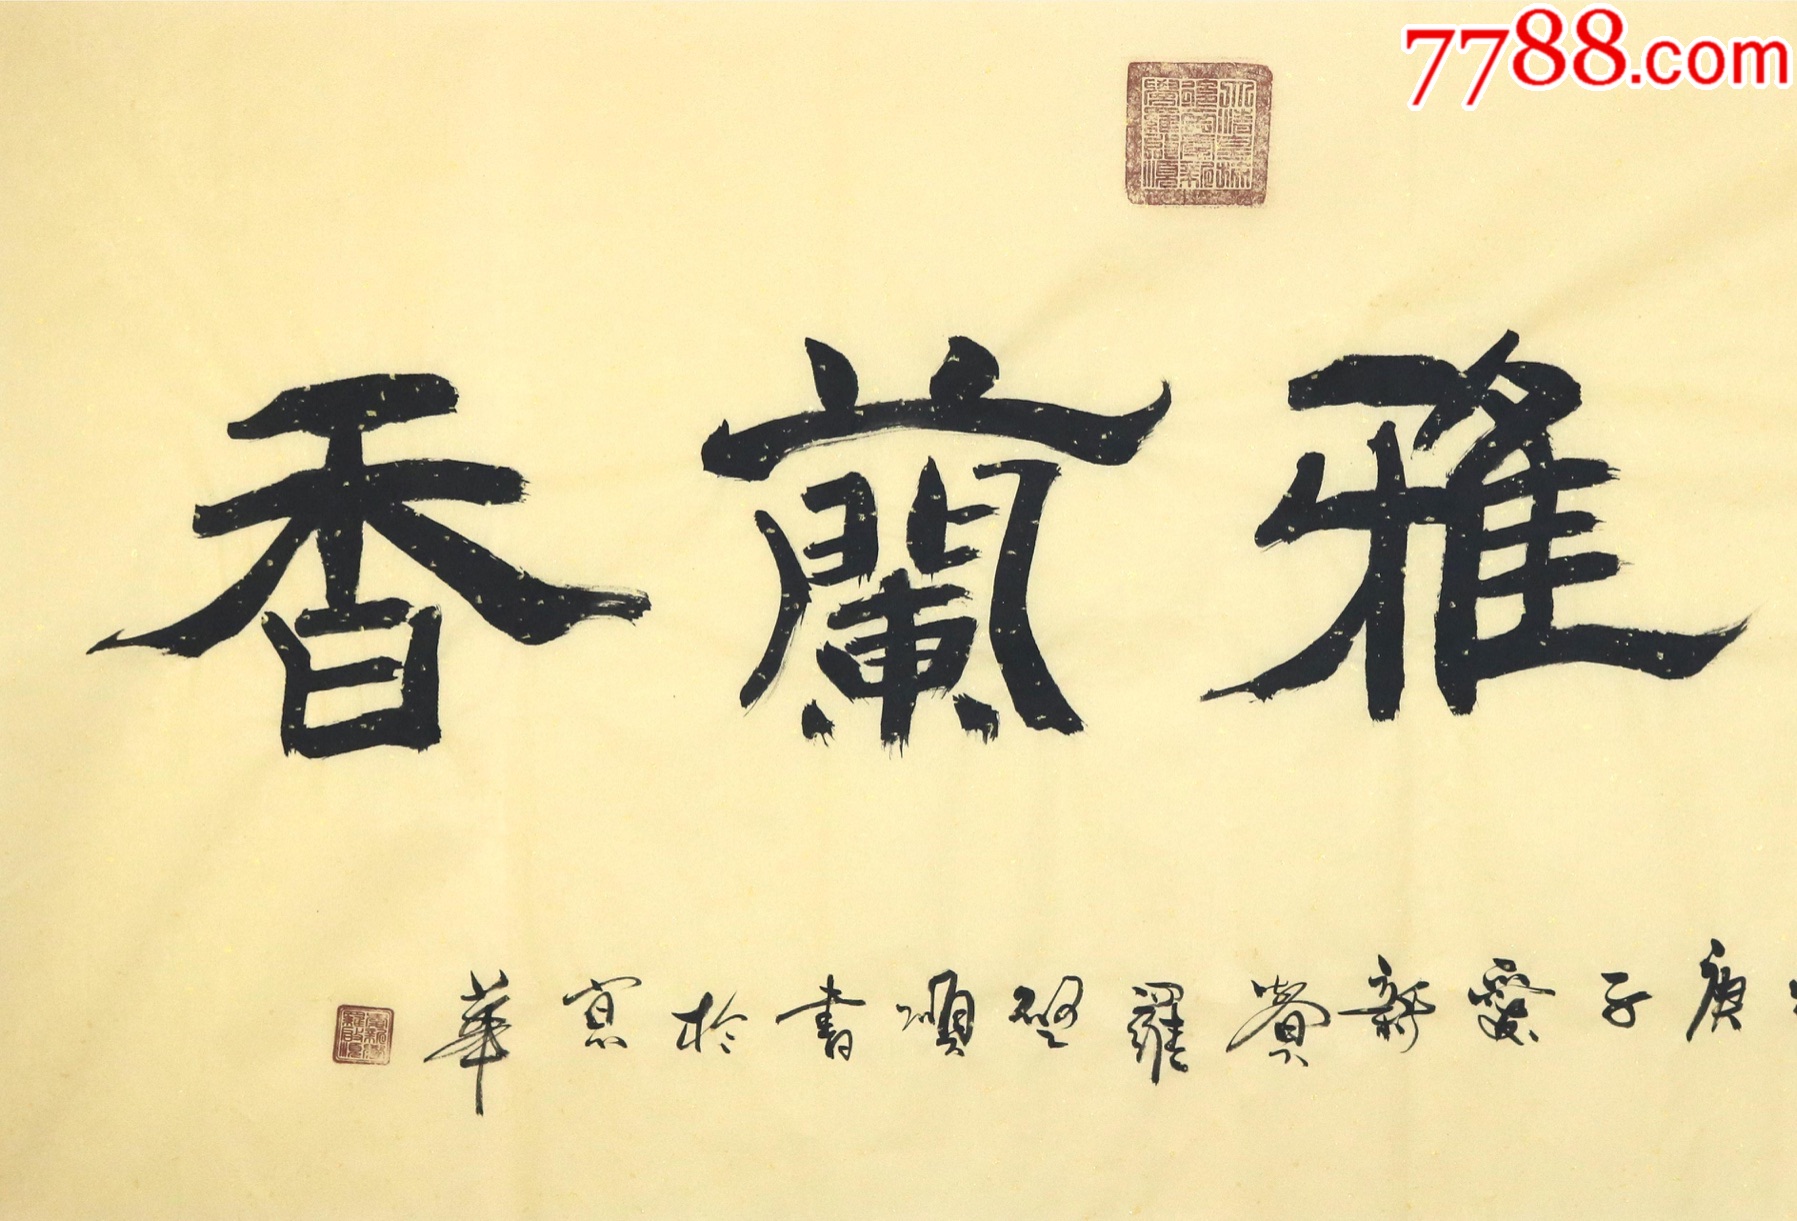 7788.com
雅蘭香
庚子愛新覺羅啓順書於京華